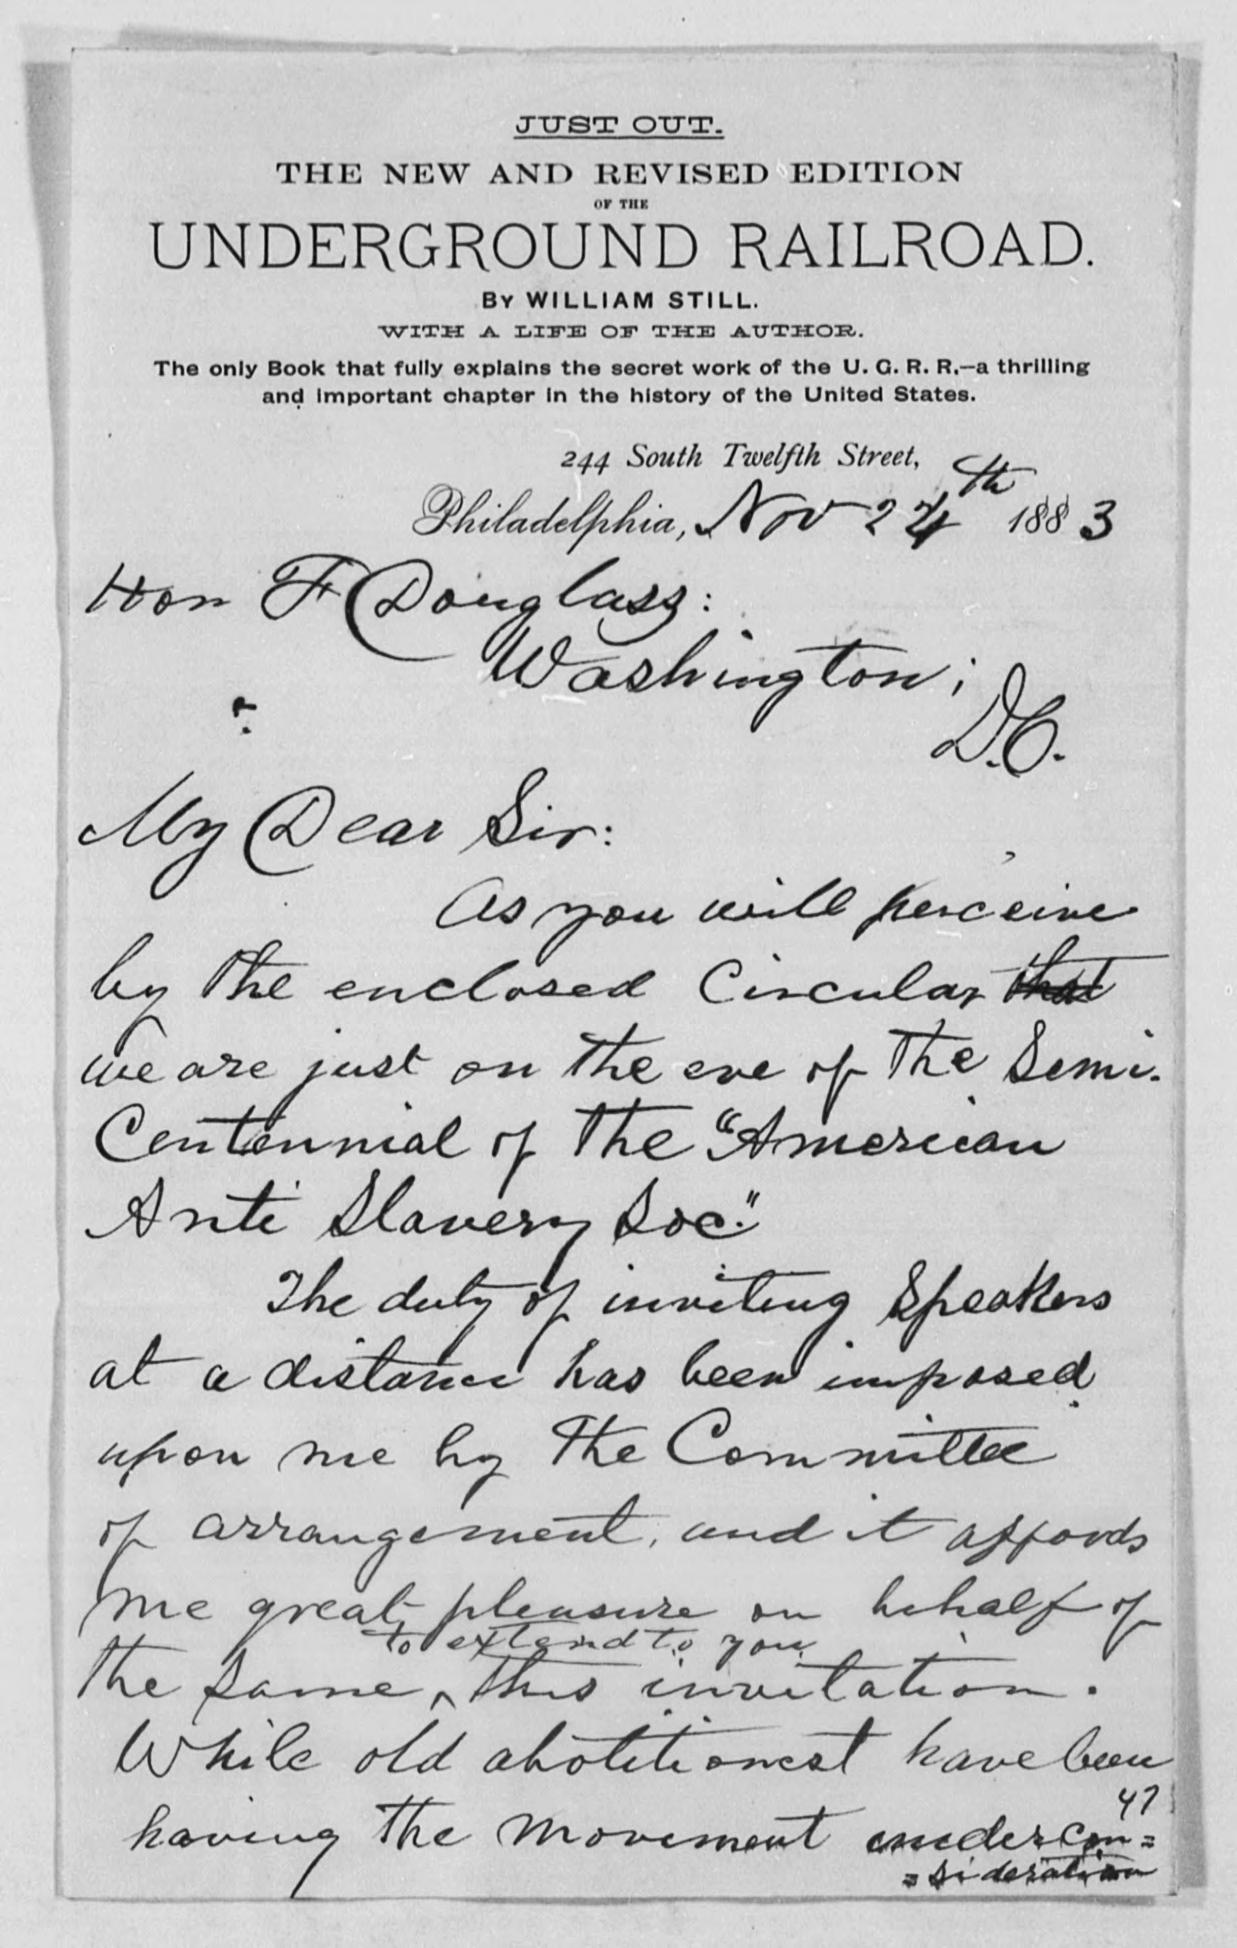 JUST OUT.
THE NEW AND REVISED EDITION
OF THE
UNDERGROUND RAILROAD.
BY WILLIAM STILL.
WITH A LIFE OF THE AUTHOR.
The only Book that fully explains the secret work of the U. G. R. R.—a thrilling
and important chapter in the history of the United States.
244 South Twelfth Street,
Philadelphia, Nov 24th 1883
Hon F Douglass:
Washington;
D.C.
My Dear Sir:
As you will perceive
by the enclosed Circular that
we are just on the eve of the Semi-
Centennial of the "American
Anti Slavery Soc."
The duty of inviting Speakers
at a distance has been imposed
upon me by the Committee
of arrangement, and it affords
me great pleasure on behalf of
to extend to you
the same, ^ this invitation.
While old abolitionest have been
47
having the movement under con=
=sideration